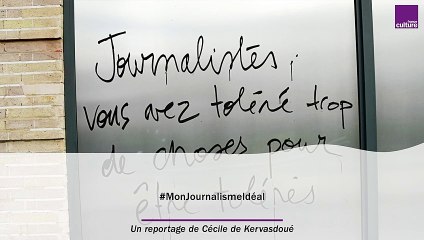 france
culture
Journalistes,
vous avez toléré trop
de choses pour
être tolérés
#MonJournalismeIdéal
Un reportage de Cécile de Kervasdoué